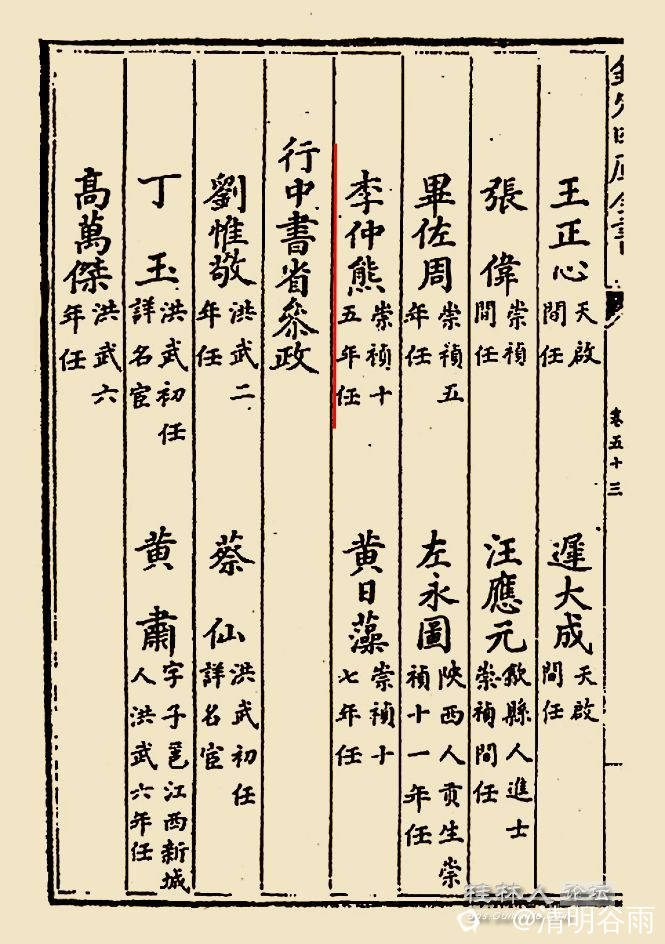 欽定四庫全書
卷五十三
王正心 天啟間任
遲大成 天啟間任
張偉 崇禎間任
汪應元 歙縣人進士崇禎間任
畢佐周 崇禎五年任
左永圖 陝西人貢生崇禎十一年任
李仲熊 崇禎十五年任
黃日藻 崇禎十七年任
行中書省叅政
劉惟敬 洪武二年任
蔡仙 洪武初任詳名宦
丁玉 洪武初任詳名宦
黃肅 字子邕江西新城人洪武六年任
高萬傑 洪武六年任
桂林人论坛
@清明谷雨